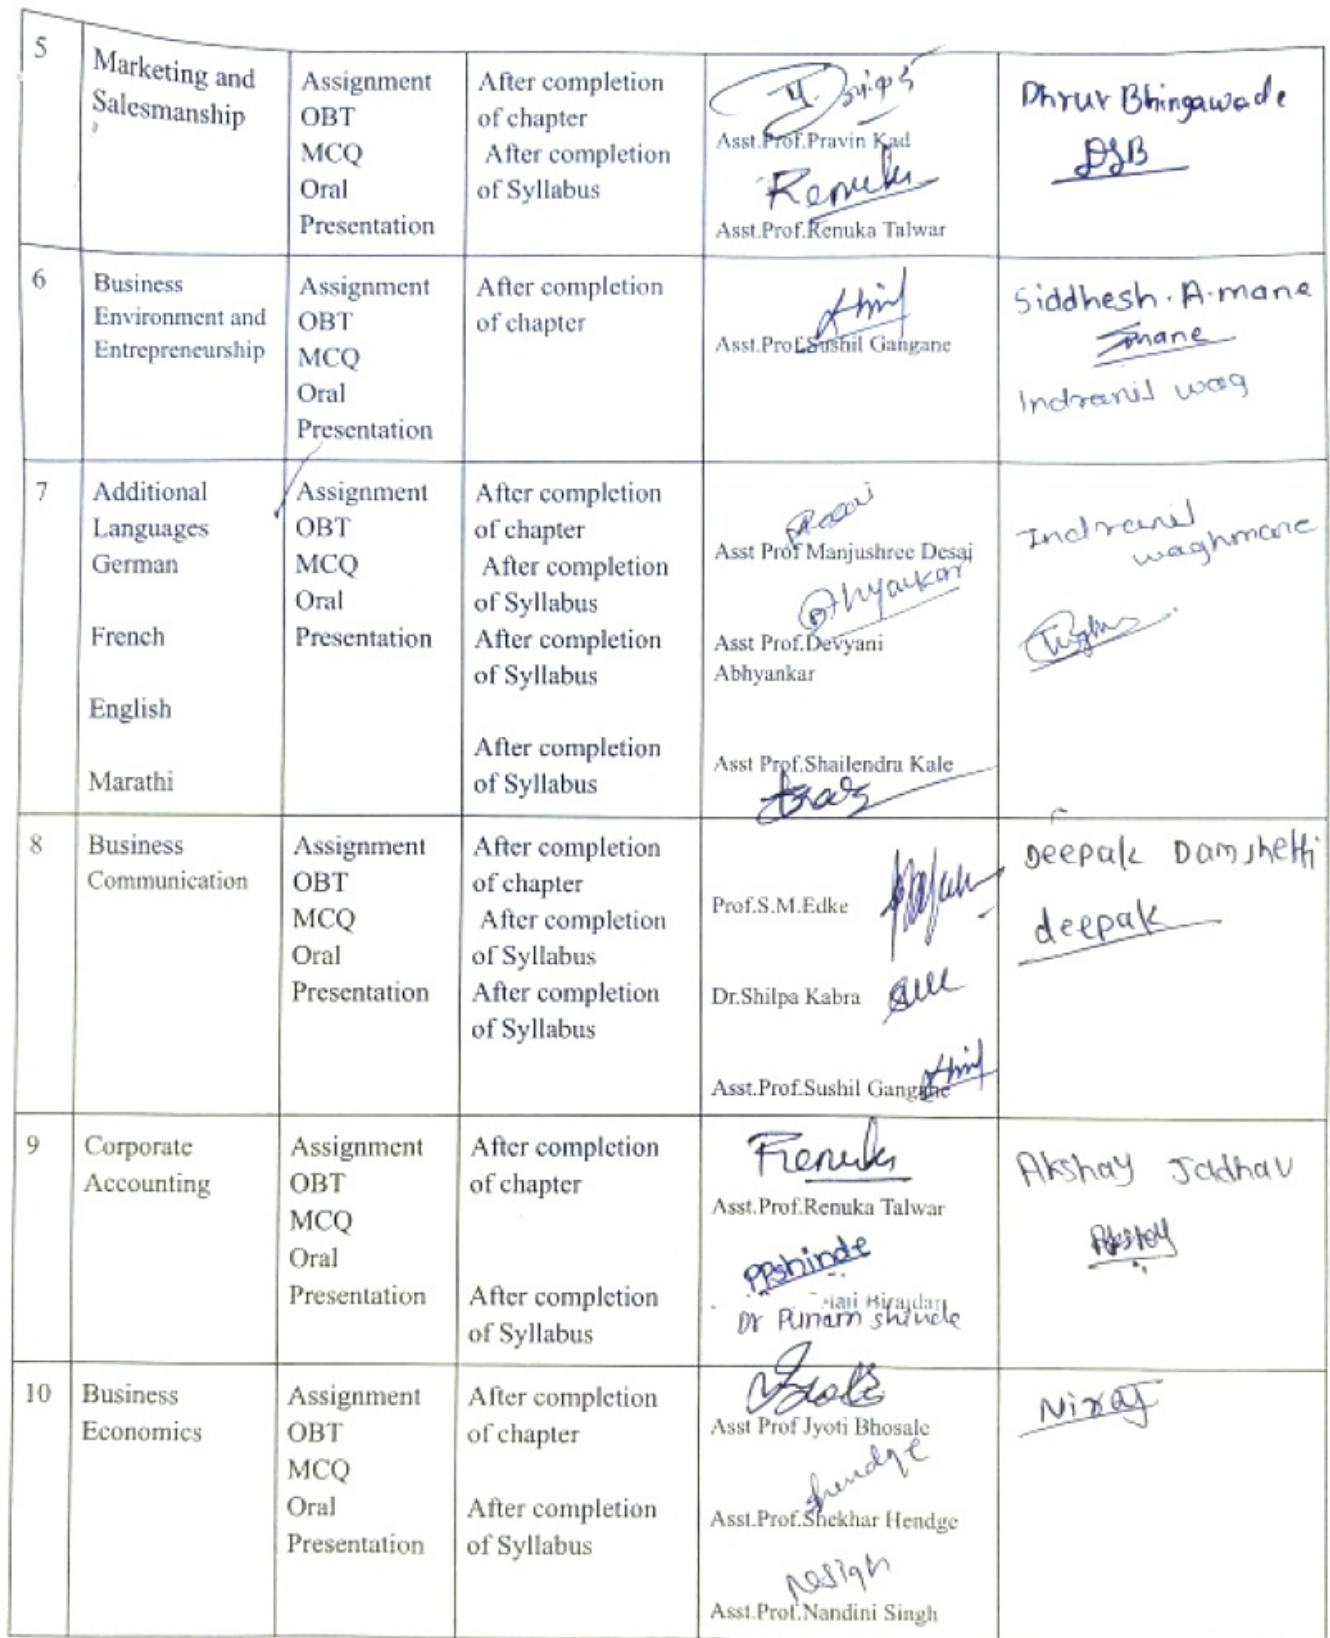 5
Marketing and
Salesmanship
Assignment
OBT
MCQ
Oral
Presentation
After completion
of chapter
After completion
of Syllabus
Asst.Prof.Pravin Kad
Renuka
Asst.Prof.Renuka Talwar
Dhruv Bhingawade
DSB
6
Business
Environment and
Entrepreneurship
Assignment
OBT
MCQ
Oral
Presentation
After completion
of chapter
Asst.Prof.Sushil Gangane
Siddhesh. A. mane
mane
Indranil wag
7
Additional
Languages
German
French
English
Marathi
Assignment
OBT
MCQ
Oral
Presentation
After completion
of chapter
After completion
of Syllabus
After completion
of Syllabus
After completion
of Syllabus
Asst Prof Manjushree Desai
Asst Prof.Devyani
Abhyankar
Asst Prof.Shailendra Kale
Indranil
waghmare
8
Business
Communication
Assignment
OBT
MCQ
Oral
Presentation
After completion
of chapter
After completion
of Syllabus
After completion
of Syllabus
Prof.S.M.Edke
Dr.Shilpa Kabra
Asst.Prof.Sushil Gangane
Deepak Damshetti
deepak
9
Corporate
Accounting
Assignment
OBT
MCQ
Oral
Presentation
After completion
of chapter
After completion
of Syllabus
Renuka
Asst.Prof.Renuka Talwar
PPshinde
Birajdar
Dr Punam shinde
Akshay Jadhav
Akshay
10
Business
Economics
Assignment
OBT
MCQ
Oral
Presentation
After completion
of chapter
After completion
of Syllabus
Asst Prof Jyoti Bhosale
Hendge
Asst.Prof.Shekhar Hendge
Asst.Prof.Nandini Singh
Niraj